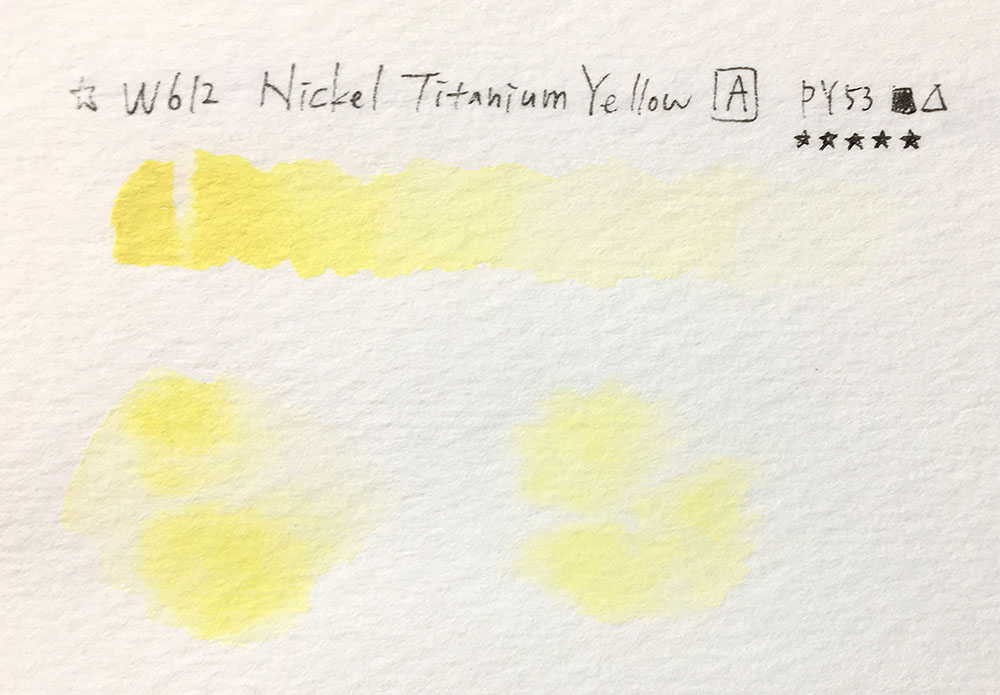 ☆ W612 Nickel Titanium Yellow A PY53 ■△
★☆★★★